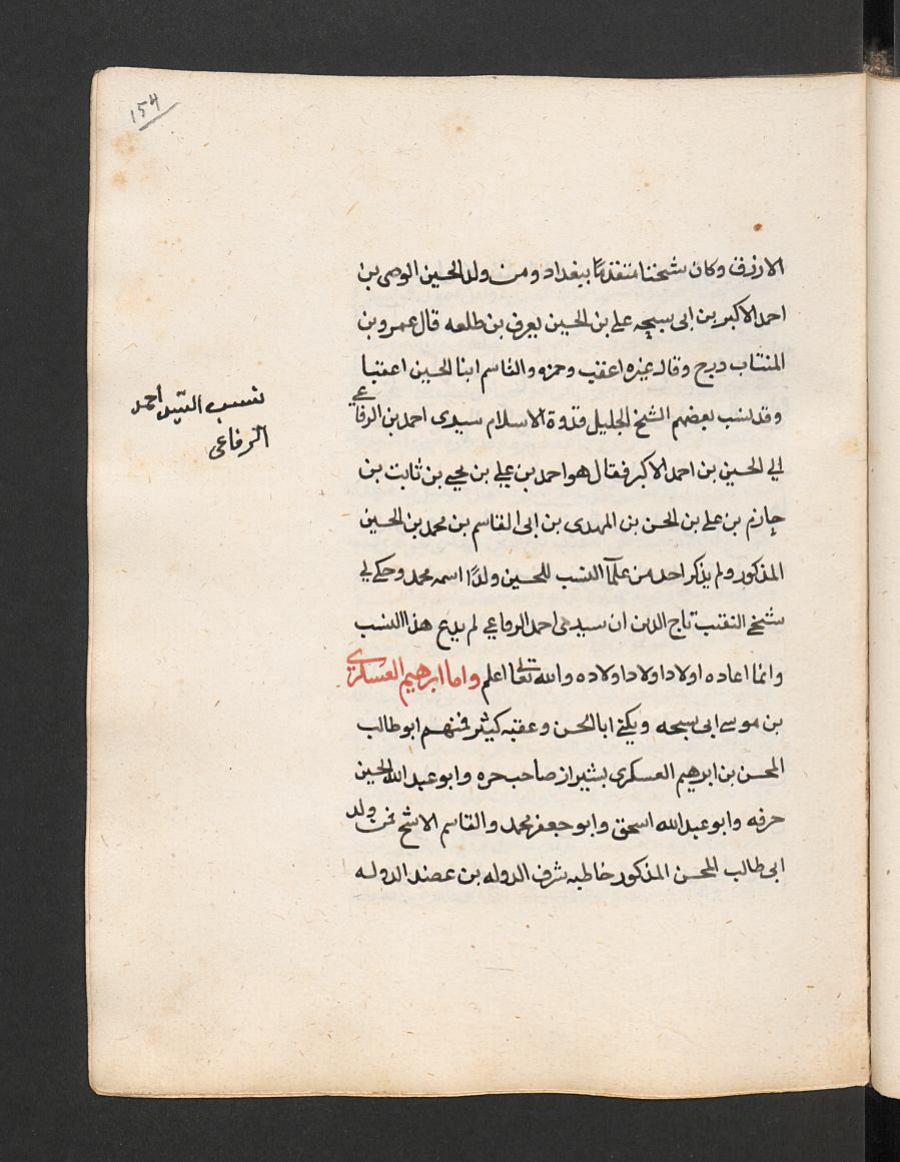 154
الازرق وكان شيخنا متقدمًا ببغداد ومن ولد الحسين الوصى بن
احمد الاكبر بن ابى سبحه على بن الحسين يعرف بن طلعه قال عمرو بن
المنتاب درج وقال غيره اعقب وحمزه والقاسم ابنا الحسين اعقبا
وقد نسب بعضهم الشيخ الجليل قدوة الاسلام سيدى احمد بن الرفاعي
نسب السيد أحمد
الرفاعى
الي الحسين بن احمد الاكبر فقال هو احمد بن علي بن يحيي بن ثابت بن
حازم بن علي بن الحسن بن المهدى بن ابى القاسم بن محمد بن الحسين
المذكور ولم يذكر احد من علمآ النسب للحسين ولدًا اسمه محمد وحكي لي
شيخي النقيب تاج الدين ان سيدى احمد الرفاعي لم يدع هذا النسب
وانما اعاده اولاد اولاد اولاده والله تعالى اعلم واما ابرهيم العسكرى
بن موسي ابى سبحه ويكني ابا الحسن وعقبه كثير فمنهم ابو طالب
المحسن بن ابرهيم العسكرى بشيراز صاحب حره وابو عبد الله الحسين
حرفه وابو عبد الله اسحق وابو جعفر محمد والقاسم الاشج فمن ولد
ابى طالب المحسن المذكور خاطبه شرف الدوله بن عضد الدوله